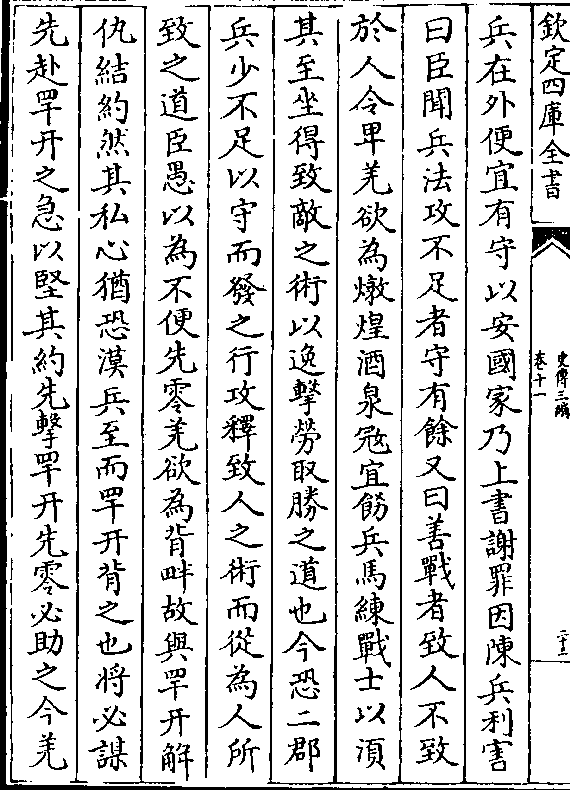 欽定四庫全書
史傳三編
卷十一
二十三
兵在外便宜有守以安國家乃上書謝罪因陳兵利害
曰臣聞兵法攻不足者守有餘又曰善戰者致人不致
於人今䍐羌欲為燉煌酒泉冦宜飭兵馬練戰士以湏
其至坐得致敵之術以逸擊勞取勝之道也今恐二郡
兵少不足以守而發之行攻釋致人之術而從為人所
致之道臣愚以為不便先零羌欲為背畔故與䍐开解
仇結約然其私心猶恐漢兵至而䍐开背之也將必謀
先赴䍐开之急以堅其約先擊䍐开先零必助之今羌